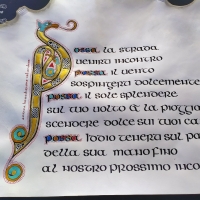 Possa la strada
venirti incontro
Possa il vento
sospingerti dolcemente
Possa il sole splendere
sul tuo volto e la pioggia
scendere dolce sui tuoi ca
Possa Iddio tenerti sul pa
della sua mano fino
al nostro prossimo inco